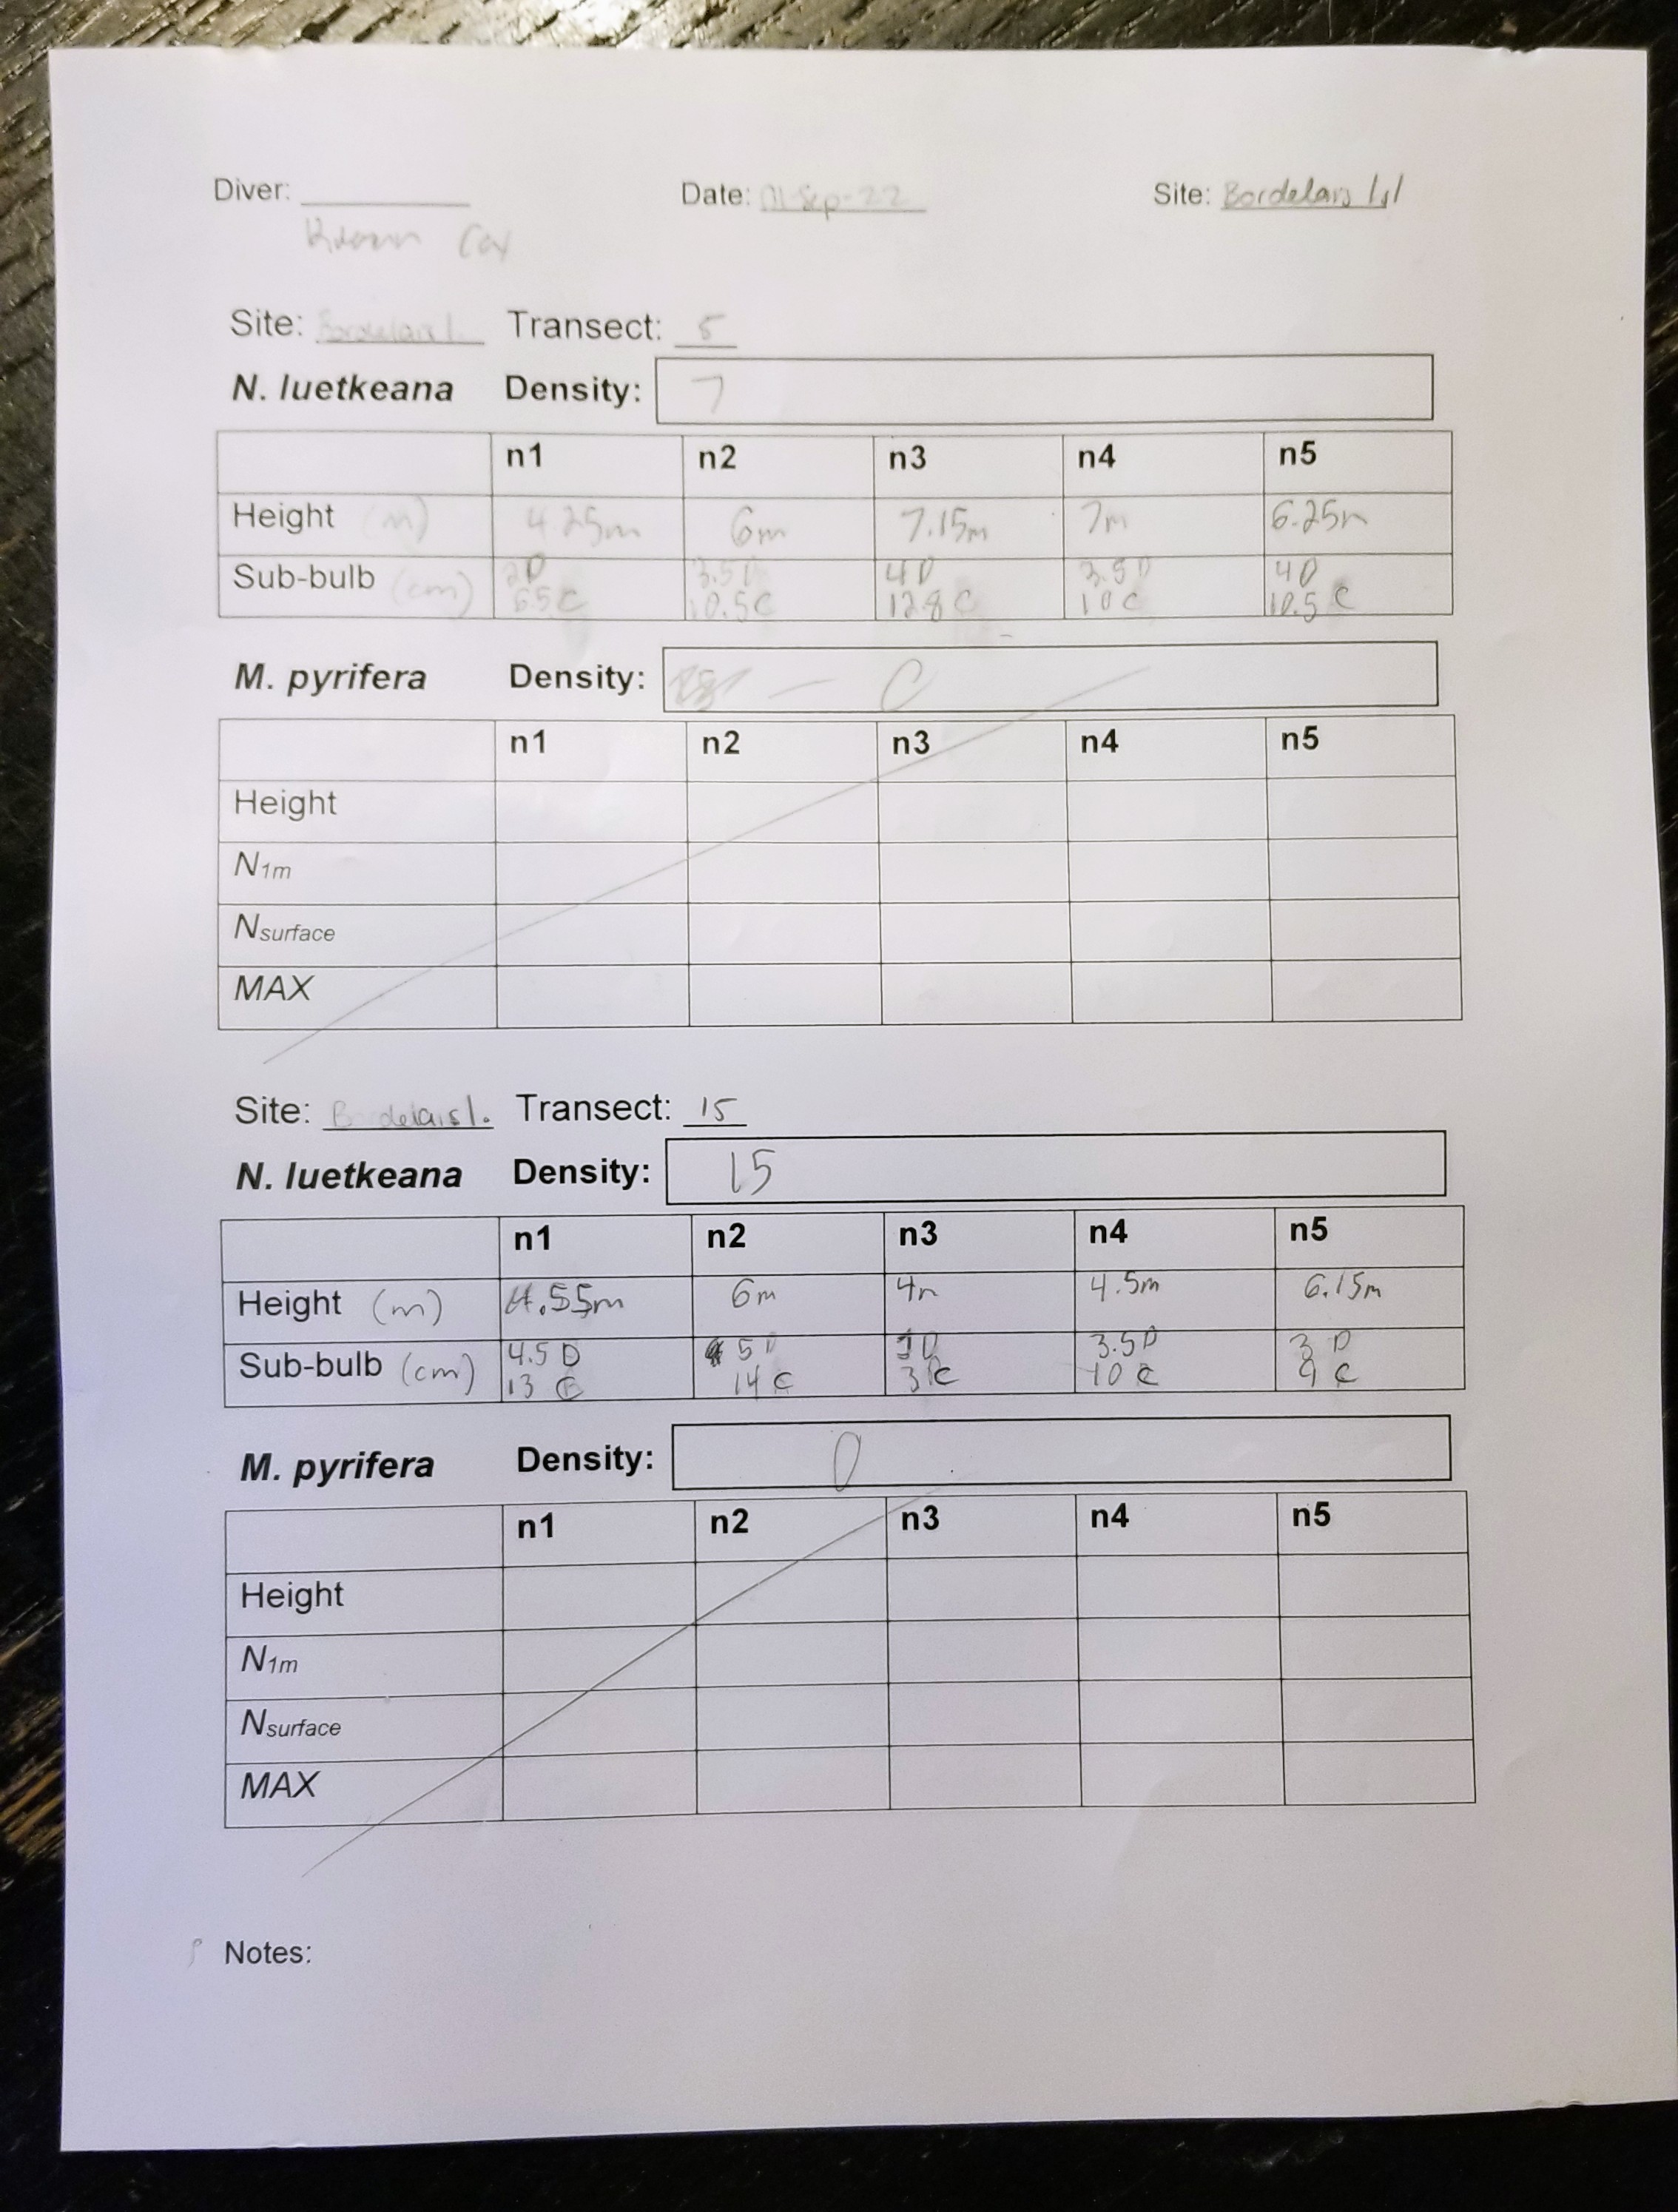 Diver: Date: 01-Sep-22 Site: Bordelais Isl
Cox
Site: Bordelais I. Transect: 5
N. luetkeana Density: 7
n1 n2 n3 n4 n5
Height (m) 4.25m 6m 7.15m 7m 6.25m
Sub-bulb (cm) 2D 3.5D 4D 3.5D 4D
6.5C 10.5C 12.8C 10C 10.5C
M. pyrifera Density: — 0
n1 n2 n3 n4 n5
Height
N1m
Nsurface
MAX
Site: Bordelais I. Transect: 15
N. luetkeana Density: 15
n1 n2 n3 n4 n5
Height (m) 4.55m 6m 4m 4.5m 6.15m
Sub-bulb (cm) 4.5D 5D 1D 3.5D 3D
13C 14C 3C 10C 9C
M. pyrifera Density: 0
n1 n2 n3 n4 n5
Height
N1m
Nsurface
MAX
Notes: